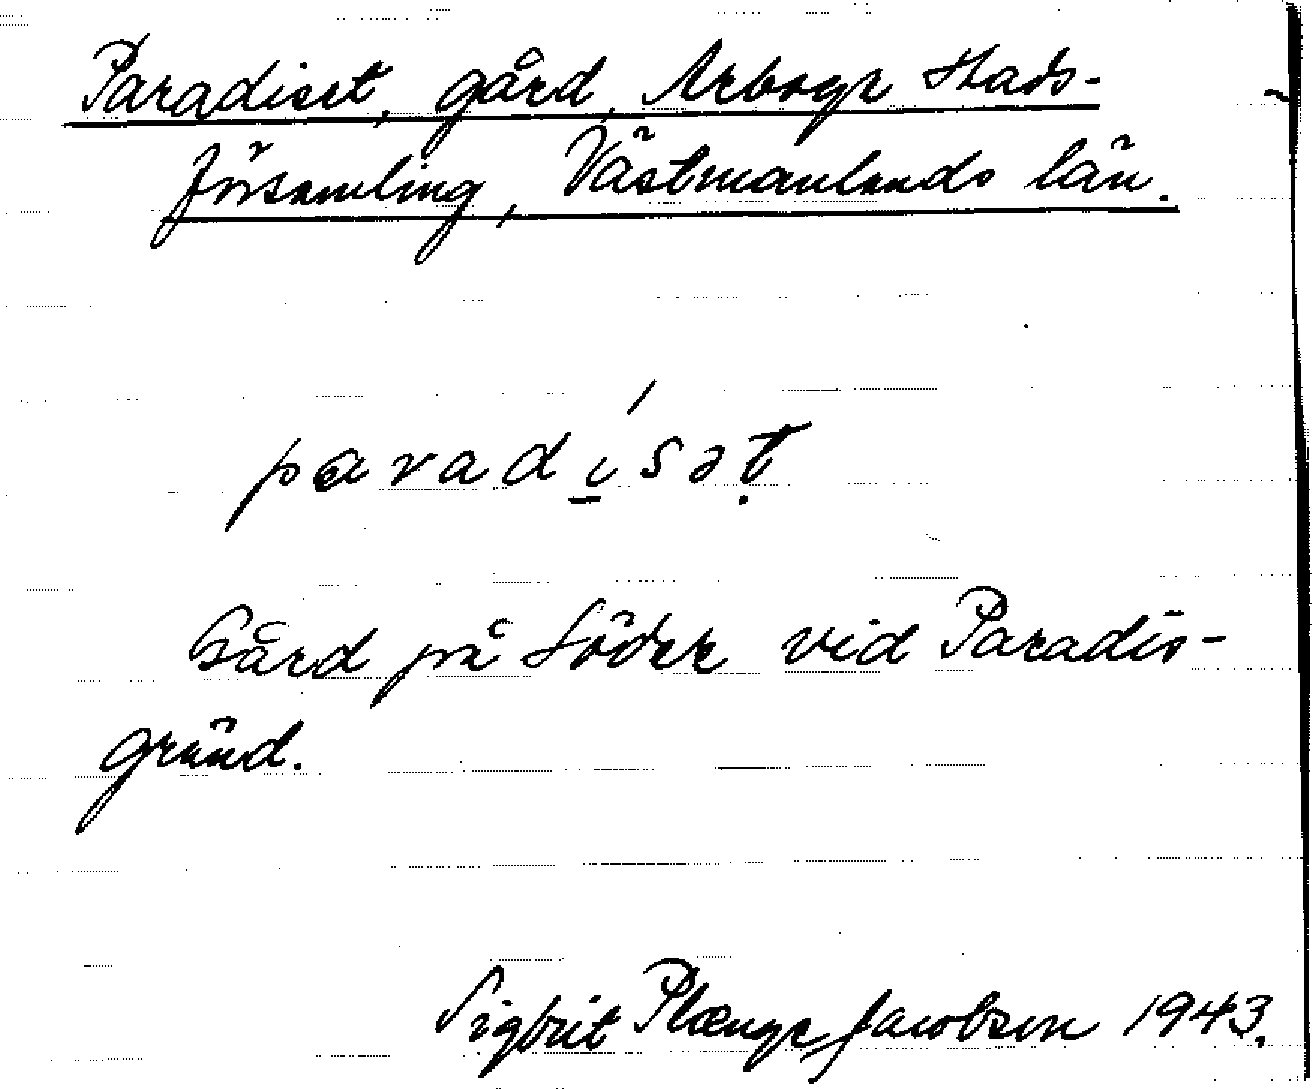 Paradiset, gård, Arboga stads-
församling, Västmanlands län.
paradi̲´sәṭ
Gård på Söder vid Paradis-
gränd.
Sigbrit Plænge Jacobson 1943.